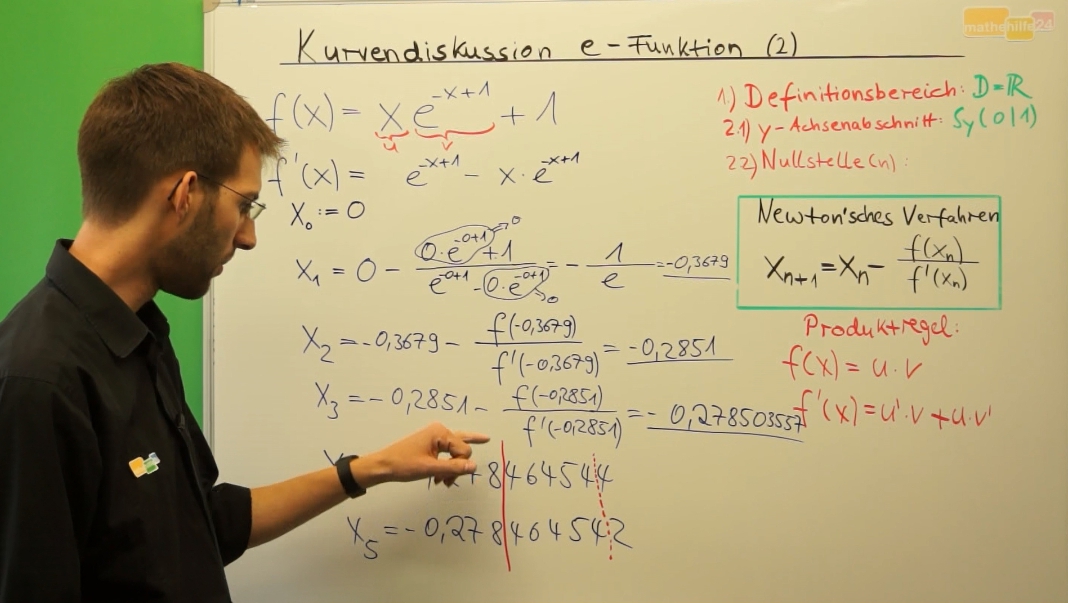 mathehilfe24
Kurvendiskussion e-Funktion (2)
f(x) = x e^{-x+1} + 1
u v
f'(x) = e^{-x+1} - x · e^{-x+1}
x₀ := 0
x₁ = 0 - \frac{0·e^{-0+1}+1}{e^{-0+1} - 0·e^{-0+1}} = - \frac{1}{e} = -0,3679
0
0
x₂ = -0,3679 - \frac{f(-0,3679)}{f'(-0,3679)} = -0,2851
x₃ = -0,2851 - \frac{f(-0,2851)}{f'(-0,2851)} = -0,278503557
8464544
x₅ = -0,278464542
1) Definitionsbereich: D=ℝ
2.1) y-Achsenabschnitt: Sy(0|1)
2.2) Nullstelle(n):
Newton'sches Verfahren
xₙ₊₁ = xₙ - \frac{f(xₙ)}{f'(xₙ)}
Produktregel:
f(x) = u·v
f'(x) = u'·v + u·v'